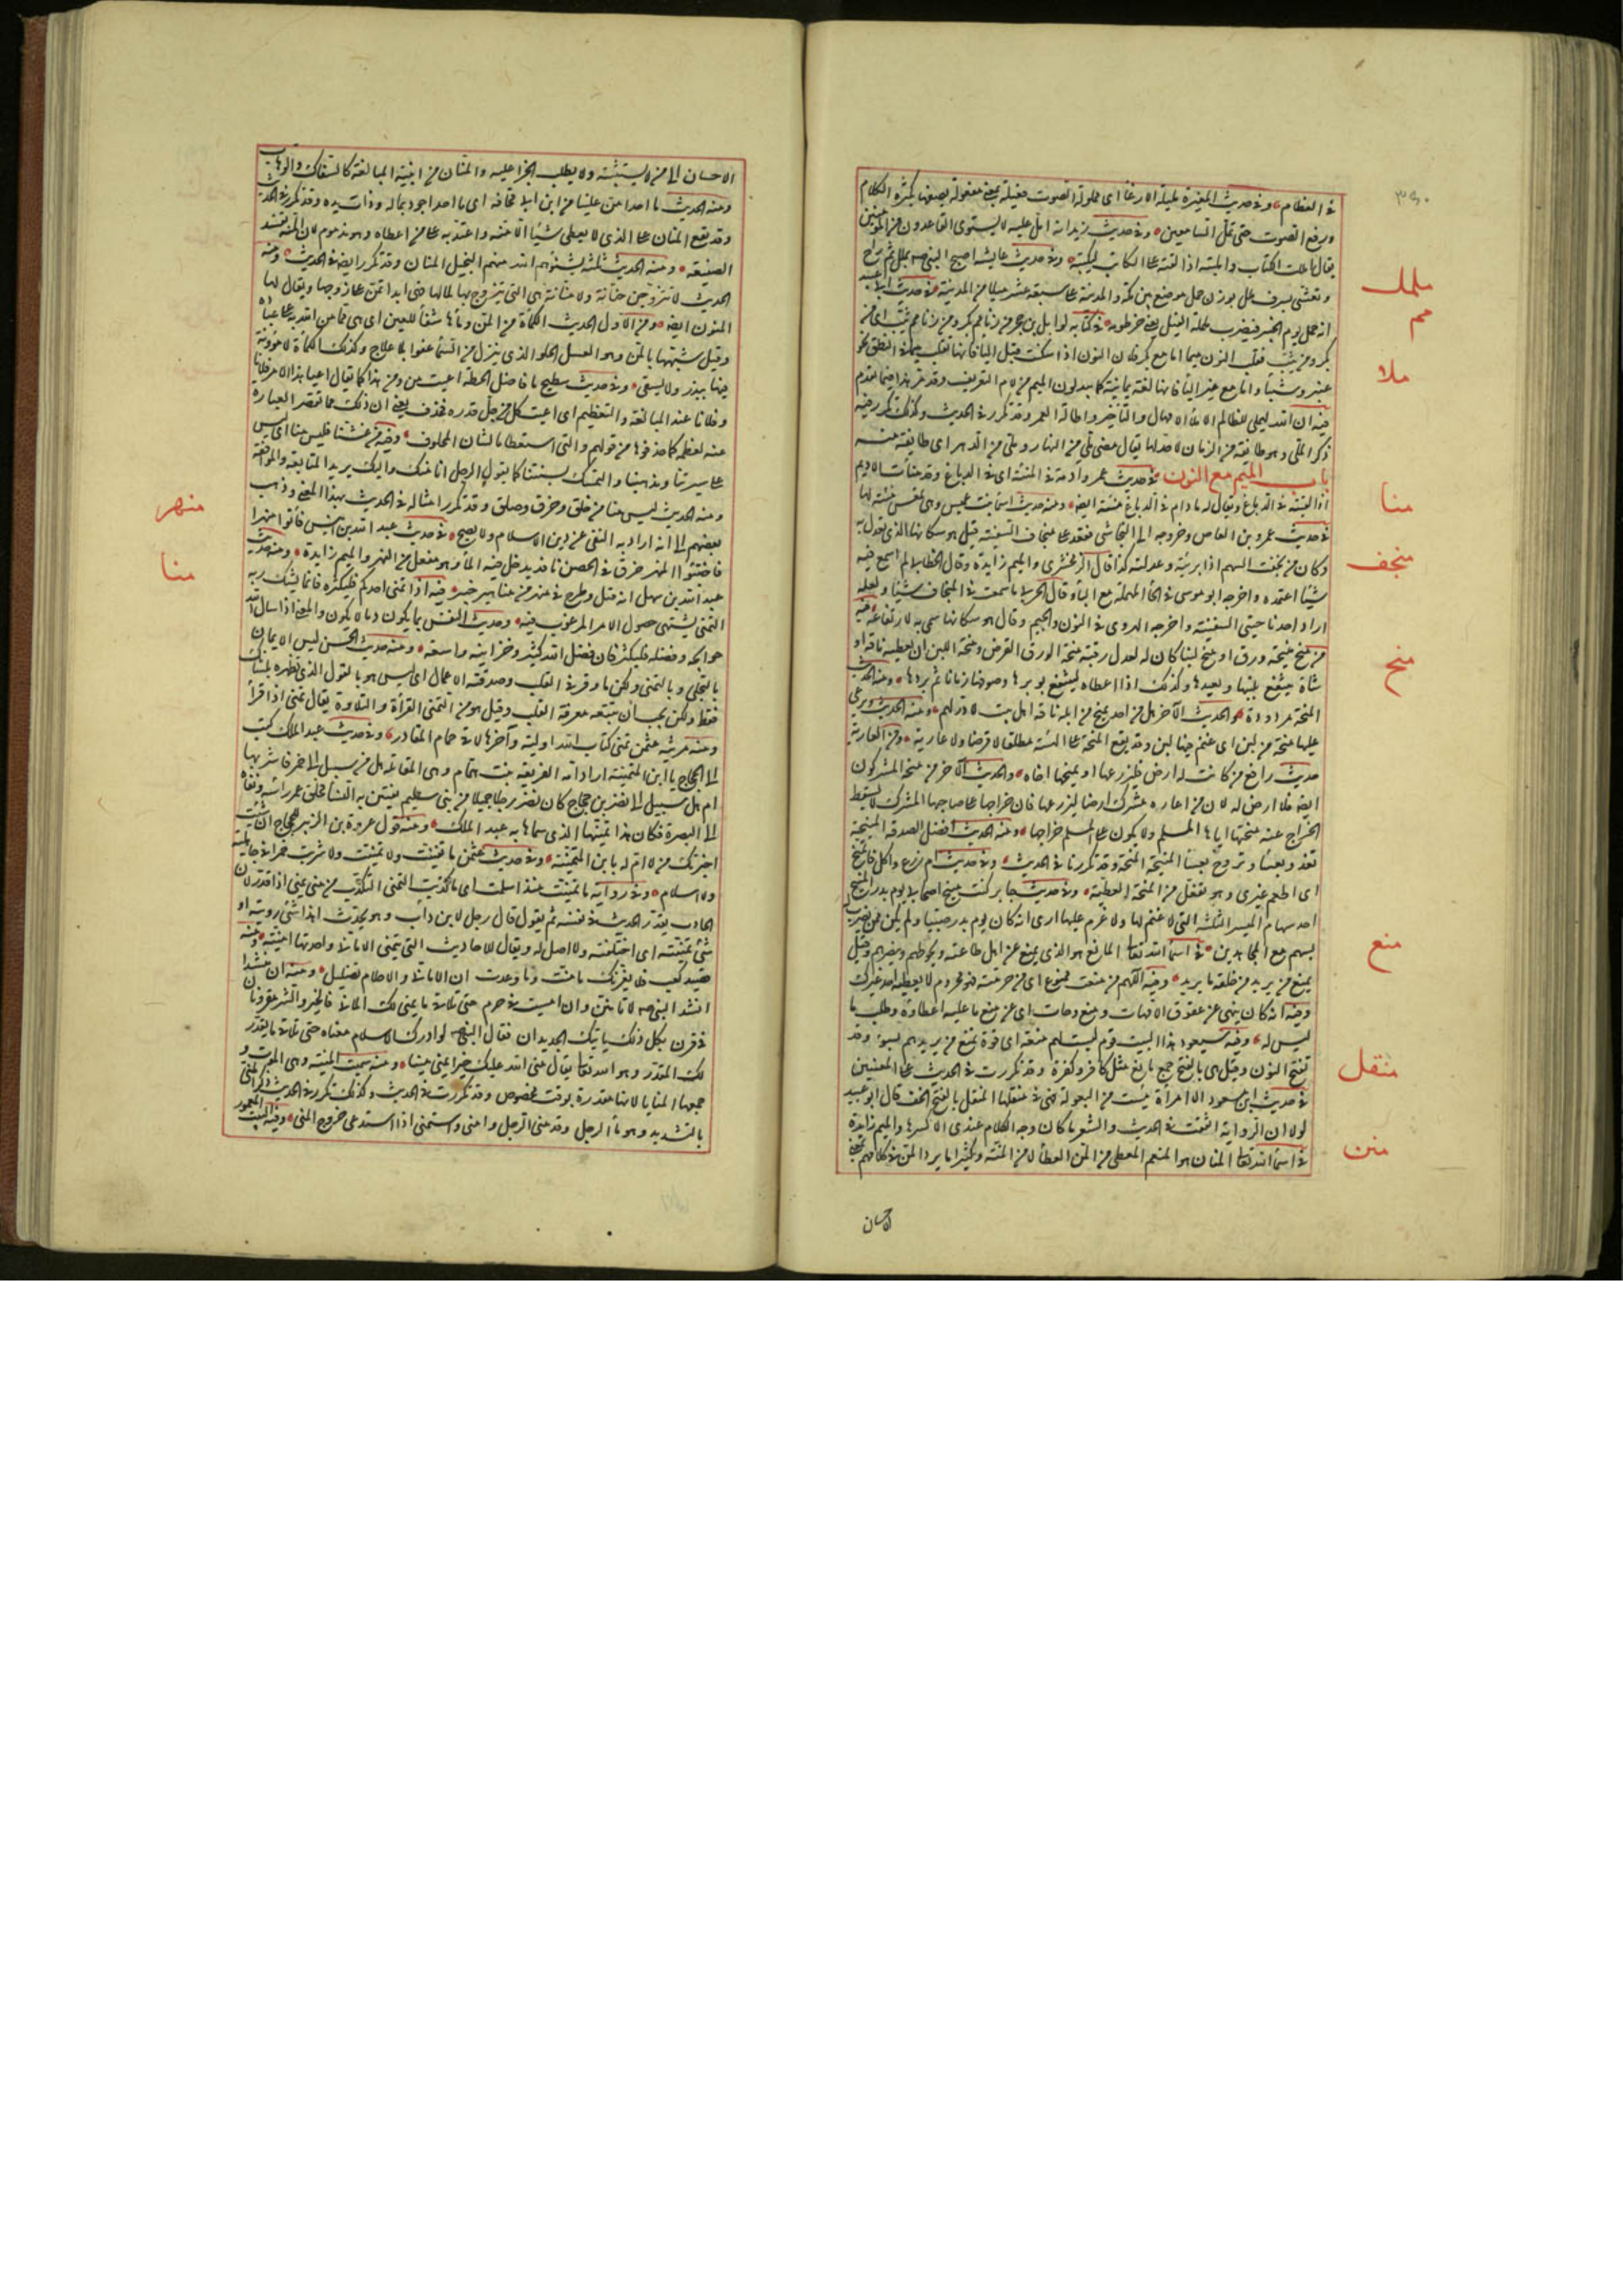 في العظام وفي حديث المغيرة مليلة الارغاء اي مملولة الصوت فعيلة بمعنى مفعولة يصفها بكثرة الكلام
ورفع الصوت حتى تمل السامعين وفي حديث زيد انه امل عليه لا يستوي القاعدون من المؤمنين
يقال امللت الكتاب وامليته اذا القيته على الكاتب ليكتبه وفي حديث عايشة اصبح النبي صم بملل ثم راح
وتعشى بسرف ملل بوزن جمل موضع بين مكة والمدينة على سبعة عشر ميلا من المدينة في حديث ابي عبيد
انه حمل يوم الجسر فضرب ململة الفيل يعني خرطومه في كتابه لوايل بن حجر من زنا مم بكر ومن زنا مم ثيب اي من
بكر ومن ثيب فقلب النون ميما اما مع بكر فلان النون اذا سكنت قبل الباء فانها تقلب ميما في النطق نحو
عنبر وشنباء واما مع غير الباء فانها لغة يمانية كما يبدلون الميم من لام التعريف وقد مر هذا فيما تقدم
فيه ان الله ليملي للظالم الاملاء الامهال والتاخير واطالة العمر وقد تكرر في الحديث وكذلك تكرر فيه
ذكر الملي وهو طايفة من الزمان لا حد لها يقال مضى ملي من النهار وملي من الدهر اي طايفة منه
باب الميم مع النون في حديث عمر وآدمة في المنيئة اي في الدباغ وقد منأت الاديم
اذا القيته في الدباغ ويقال له ما دام في الدباغ منيئة ايضا ومنه حديث اسماء بنت عميس وهي تمعس منيئة لها
في حديث عمرو بن العاص وخروجه الى النجاشي فقعد على منجاف السفينة قيل هو سكانها الذي تعدل به
وكان من نجفت السهم اذا بريته وعدلته كذا قال الزمخشري والميم زايدة وقال الخطابي لم اسمع فيه
شيئا اعتمده واخرجه ابو موسى في الحاء المهملة مع الياء وقال الحربي ما سمعت في المنجاف شيئا ولعله
اراد احد ناحيتي السفينة واخرجه الهروي في النون والجيم وقال هو سكانها سمي به لارتفاعه فيه
من منح منيحة ورق او منح لبنا كان له لعدل رقبة منحة الورق القرض ومنحة اللبن ان يعطيه ناقة او
شاة ينتفع بلبنها ويعيدها وكذلك اذا اعطاه لينتفع بوبرها وصوفها زمانا ثم يردها ومنه الحديث
المنحة مردودة والحديث الآخر هل من احد يمنح من ابله ناقة اهل بيت لا در لهم ومنه الحديث ويرعى
عليها منحة من لبن اي غنم فيها لبن وقد يقع المنحة على الهبة مطلقا لا قرضا ولا عارية ومن العارية
حديث رافع من كانت له ارض فليزرعها او يمنحها اخاه والحديث الآخر من منحه المشركون
ارضا فلا ارض له لان من اعاره مشرك ارضا ليزرعها فان خراجها على صاحبها المشرك لا يسقط
الخراج عنه منحتها اياها المسلم ولا يكون على المسلم خراجها ومنه الحديث افضل الصدقة المنيحة
تغدو بعساء وتروح بعساء المنيحة المنحة وقد تكررتا في الحديث وفي حديث ام زرع وآكل فاتمنح
اي اطعم غيري وهو تفعل من المنحة العطية وفي حديث جابر كنت منيح اصحابي يوم بدر المنيح
احد سهام الميسر الثلثة التي لا غنم لها ولا غرم عليها اراد انه كان يوم بدر صبيا ولم يكن ممن يضرب له
بسهم مع المجاهدين في اسماء الله تعالى المانع هو الذي يمنع عن اهل طاعته ويحوطهم وينصرهم وقيل
يمنع من يريد من خلقه ما يريد وفيه اللهم من منعت ممنوع اي من حرمته فهو محروم لا يعطيه احد غيرك
وفيه انه كان ينهى عن عقوق الامهات ومنع وهات اي عن منع ما عليه اعطاؤه وطلب ما
ليس له وفيه سيعوذ بهذا البيت قوم ليست لهم منعة اي قوة تمنع من يريدهم بسوء وقد
تفتح النون وقيل هي بالفتح جمع مانع مثل كافر وكفرة وقد تكررت في الحديث على المعنيين
في حديث ابن مسعود الا امرأة يئست من البعولة فهي في منقليها المنقل بالفتح الخف قال ابو عبيد
لولا ان الرواية اتفقت في الحديث والشعر ما كان وجه الكلام عندي الا كسرها والميم زايدة
في اسماء الله تعالى المنان هو المنعم المعطي من المن العطاء لا من المنة وكثيرا ما يرد المن في كلامهم بمعنى
الاحسان
ململ
مم
ملا
منا
منجف
منح
منع
منقل
منن
الاحسان الى من لا يستثيبه ولا يطلب الجزاء عليه والمنان من ابنية المبالغة كالسفاك والوهاب
ومنه الحديث ما احد امن علينا من ابن ابي قحافة اي ما احد اجود بماله وذات يده وقد تكرر في الحديث
وقد يقع المنان على الذي لا يعطي شيئا الا منه واعتد به على من اعطاه وهو مذموم لان المنة تفسد
الصنيعة ومنه الحديث ثلثة يشنؤهم الله منهم البخيل المنان وقد تكرر ايضا في الحديث ومنه
الحديث لا تتزوجن حنانة ولا منانة هي التي يتزوج بها لمالها فهي ابدا تمن على زوجها ويقال لها
المنون ايضا ومن الاول الحديث الكمأة من المن وماؤها شفاء للعين اي هي مما من الله به على عباده
وقيل شبهها بالمن وهو العسل الحلو الذي ينزل من السماء عفوا بلا علاج وكذلك الكمأة لا مؤونة
فيها ببذر ولا بسقي وفي حديث سطيح يا فاصل الخطة اعيت من ومن هذا كما يقال اعيا هذا الامر فلانا
وفلانا عند المبالغة والتعظيم اي اعيت كل من جل قدره فحذف يعني ان ذلك مما تقصر العبارة
عنه لعظمه كما حذفوها من قولهم والتي استعظاما لشان المحلوف وفيه من غشنا فليس منا اي ليس
على سيرتنا ومذهبنا والتمسك بسنتنا كما يقول الرجل انا منك واليك يريد المتابعة والموافقة
ومنه الحديث ليس منا من حلق وخرق وصلق وقد تكرر امثاله في الحديث بهذا المعنى وذهب
بعضهم الى انه اراد به النفي عن دين الاسلام ولا يصح في حديث عبد الله بن انيس فأتوا منهرا
فاختبؤا المنهر خرق في الحصن نافذ يدخل فيه الماء وهو مفعل من النهر والميم زايدة ومنه حديث
عبد الله بن سهل انه قتل وطرح في منهر من مناهير خيبر فيه اذا تمنى احدكم فليكثر فانما يسأل ربه
التمني تشهي حصول الامر المرغوب فيه وحديث النفس بما يكون وما لا يكون والمعنى اذا سأل الله
حوايجه وفضله فليكثر فان فضل الله كثير وخزاينه واسعة ومنه حديث الحسن ليس الايمان
بالتحلي ولا بالتمني ولكن ما وقر في القلب وصدقته الاعمال اي ليس هو بالقول الذي تظهره بلسانك
فقط ولكن يجب ان تتبعه معرفة القلب وقيل هو من التمني القراءة والتلاوة يقال تمنى اذا قرأ
ومنه مرثية عثمن تمنى كتاب الله اول ليلة وآخرها لاقى حمام المقادر وفي حديث عبد الملك كتب
الى الحجاج يا ابن المتمنية اراد امه الفريعة بنت همام وهي القائلة هل من سبيل الى خمر فاشربها
ام هل سبيل الى نصر بن حجاج كان نصر رجلا جميلا من بني سليم يفتتن به النساء فحلق عمر راسه ونفاه
الى البصرة فكان هذا تمنيها الذي سماها به عبد الملك ومنه قول عروة بن الزبير للحجاج ان شئت
اخبرتك من لا ام له يا بن المتمنية وفي حديث عثمن ما تغنيت ولا تمنيت ولا شربت خمرا في جاهلية
ولا اسلام وفي رواية ما تمنيت منذ اسلمت اي ما كذبت التمني التكذب من منى يمني اذا قدر لان
الكاذب يقدر الحديث في نفسه ثم يقوله قال رجل لابن دأب وهو يحدث اهذا شيء رويته او
شيء تمنيته اي اختلقته ولا اصل له ويقال للاحاديث التي تتمنى الاماني واحدتها امنية ومنه
قصيد كعب فلا يغرنك ما منت وما وعدت ان الاماني والاحلام تضليل ومنه ان منشدا
انشد النبي صم لا تأمنن وان امسيت في حرم حتى تلاقي ما يمني لك الماني فالخير والشر مقرونان
في قرن بكل ذلك ياتيك الجديدان فقال النبي صم لو ادرك هذا الاسلام معناه حتى تلاقي ما يقدر
لك المقدر وهو الله تعالى يقال منى الله عليك خيرا يمني منيا ومنه سميت المنية وهي الموت و
جمعها المنايا لانها مقدرة بوقت مخصوص وقد تكررت في الحديث وكذلك تكرر في الحديث ذكر المني
بالتشديد وهو ماء الرجل وقد منى الرجل وامنى واستمنى اذا استدعى خروج المني وفيه البيت المعمور
منهر
منا